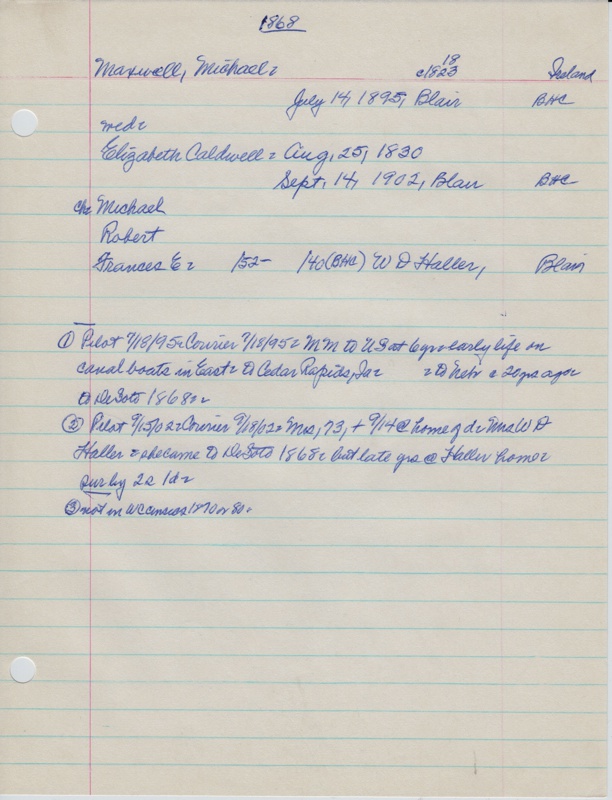 1868
Maxwell, Michael = 18 c1823 Ireland
July 14, 1895, Blair BHC
med =
Elizabeth Caldwell = Aug, 25, 1830
Sept, 14, 1902, Blair BHC
ch = Michael
Robert
Frances E = /52- /40 (BHC) W D Haller, Blair
① Pilot 7/18/95 = Courier 7/18/95 = MM to US at 6 yr = early life on
canal boats in East = to Cedar Rapids, Ia = to Nebr c 20 yrs ago =
to DeSoto 1868 = =
② Pilot 9/15/02 = Courier 9/18/02 = Mrs, 73, + 9/14 @ home of d = Mrs W D
Haller = she came to DeSoto 1868 = but late yrs @ Haller home =
sur by 2s 1d =
③ not in WC census 1870 or 80 =